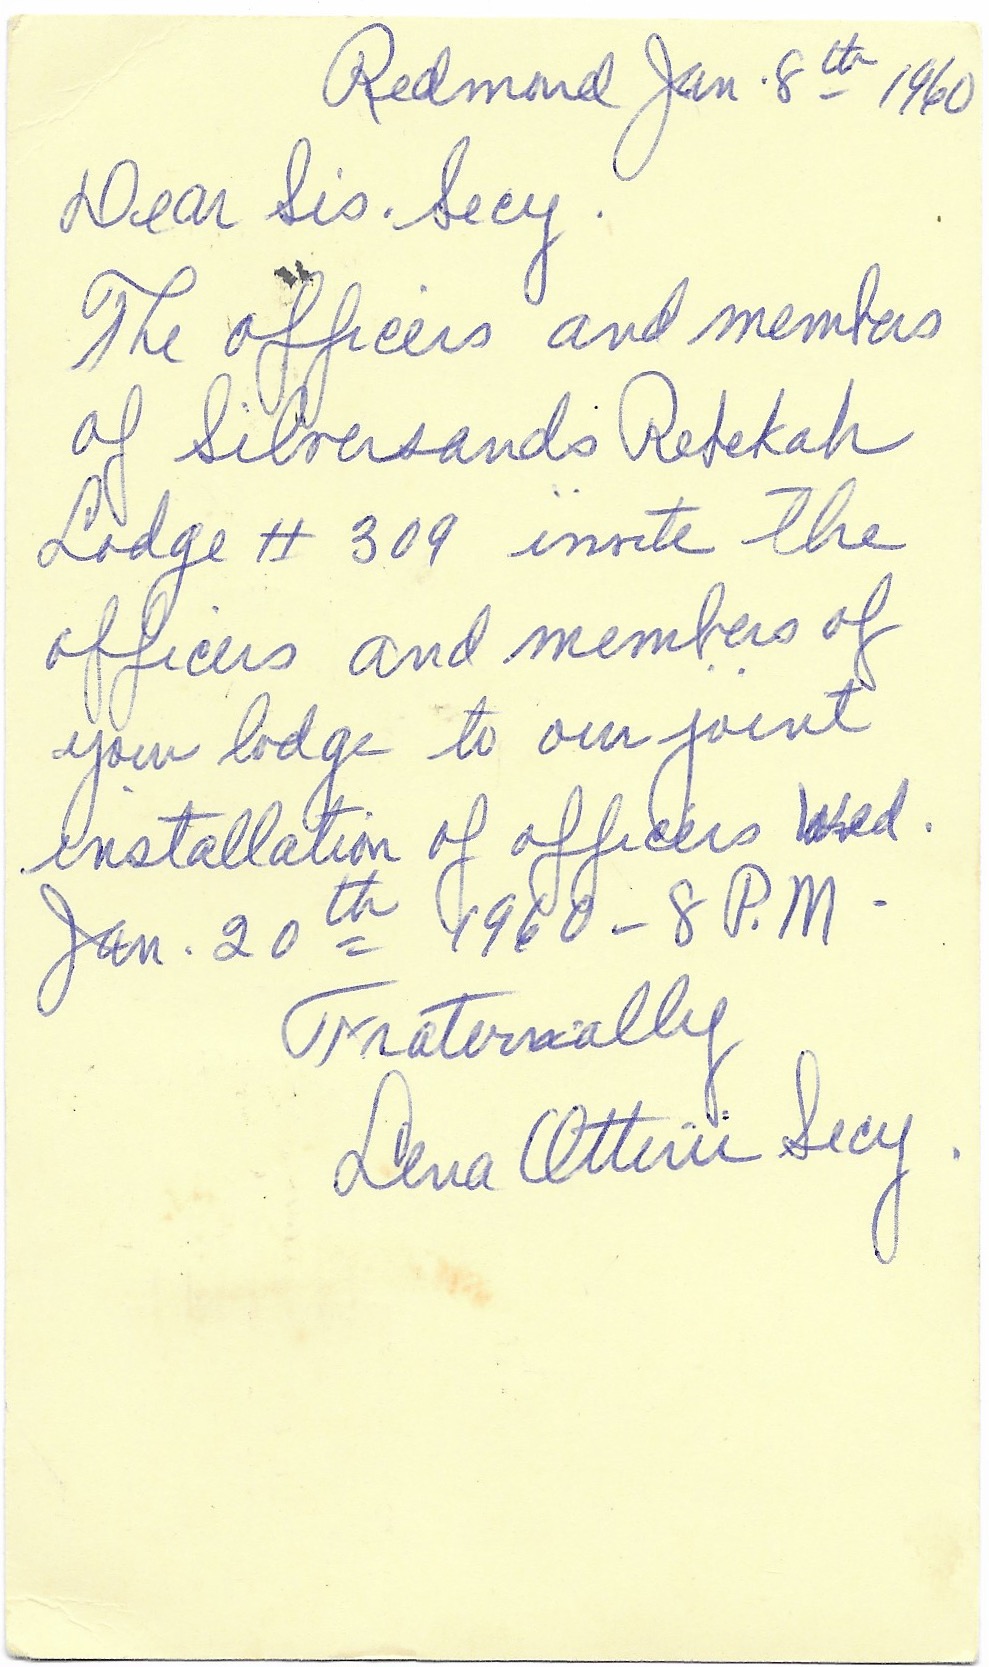 Redmond Jan. 8th 1960
Dear Sis. Secy.
The officers and members
of Silversands Rebekah
Lodge # 309 invite the
officers and members of
your lodge to our joint
installation of officers Wed.
Jan. 20th 1960 - 8 P.M -
Fraternally
Lena Secy.